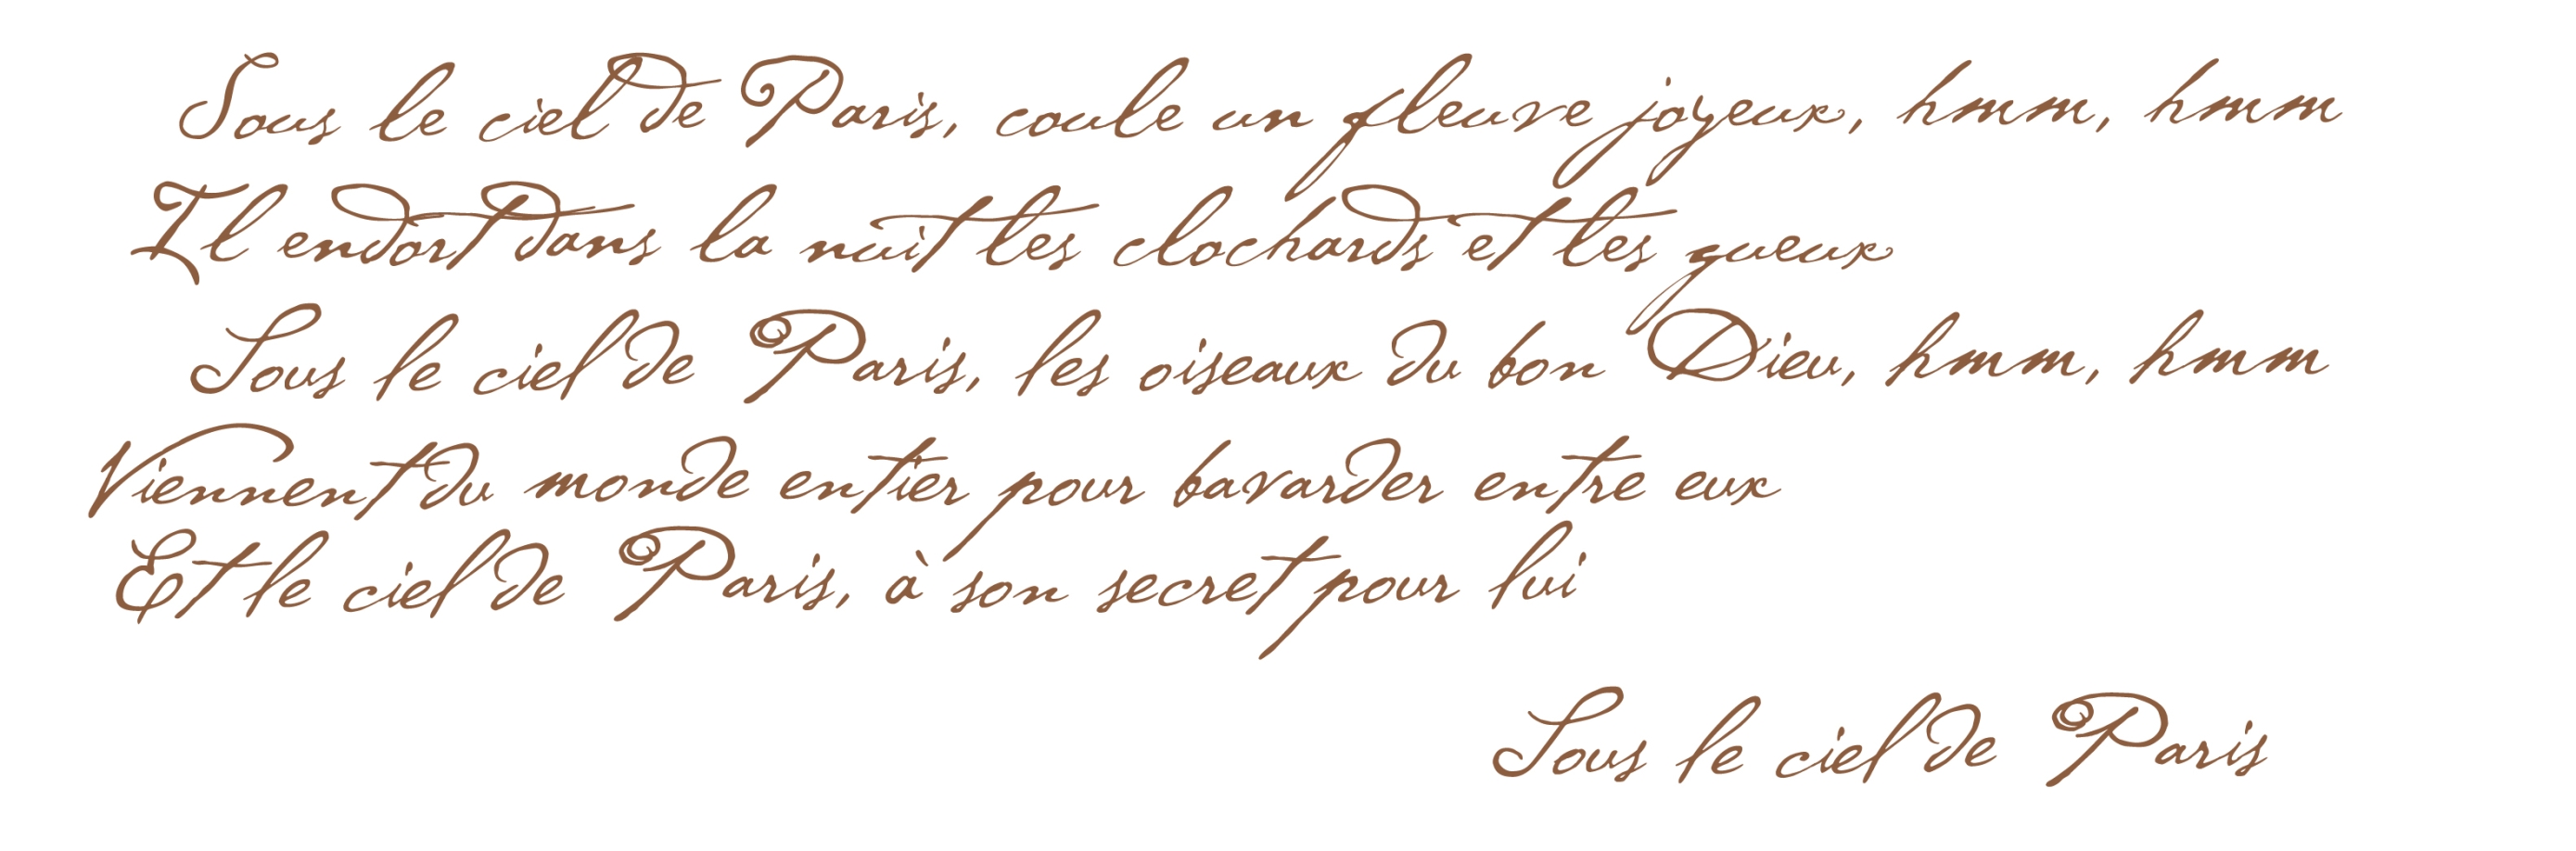 Sous le ciel de Paris, coule un fleuve joyeux, hmm, hmm
Il endort dans la nuit les clochards et les gueux
Sous le ciel de Paris, les oiseaux du bon Dieu, hmm, hmm
Viennent du monde entier pour bavarder entre eux
Et le ciel de Paris, à son secret pour lui
Sous le ciel de Paris